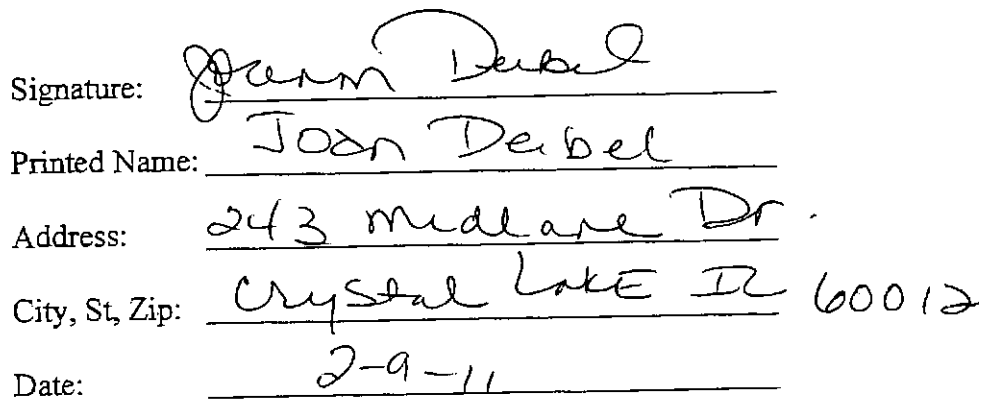 Signature: Joan Deibel
Printed Name: Joan Deibel
Address: 243 Midlane Dr.
City, St, Zip: Crystal Lake IL 60012
Date: 2-9-11